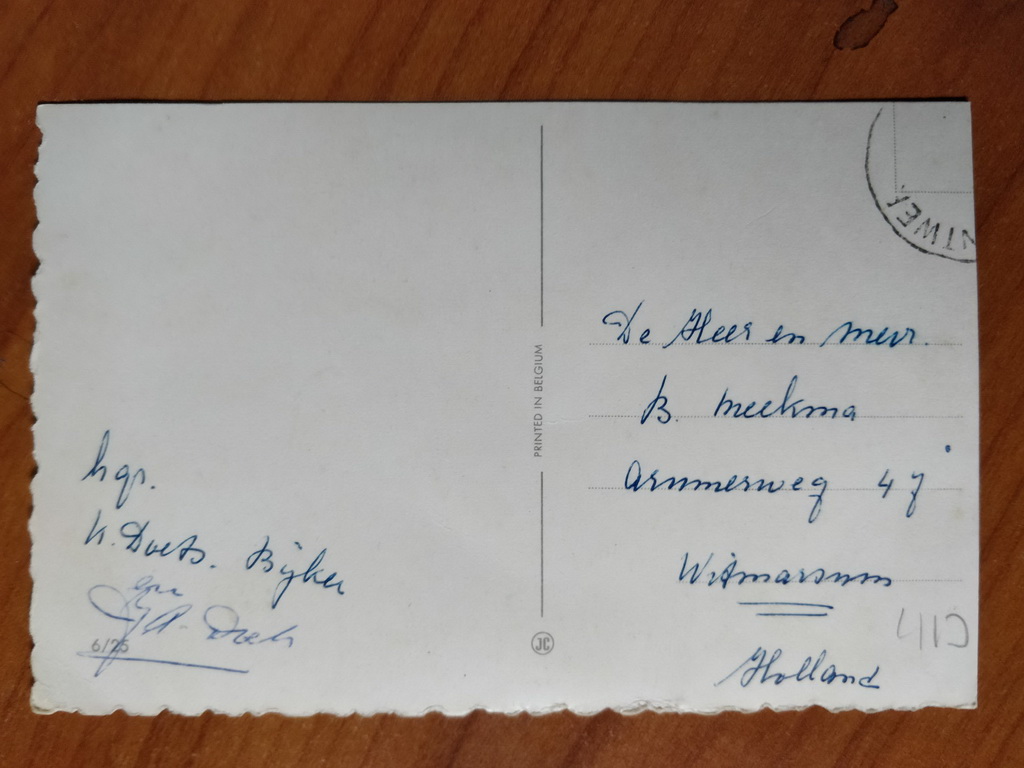 hgr.
K. Doets. Bijker
en
J.A. Doets
6/25
PRINTED IN BELGIUM
JC
NTWER
De Heer en mevr.
B. Meekma
Arumerweg 47
Witmarsum
Holland